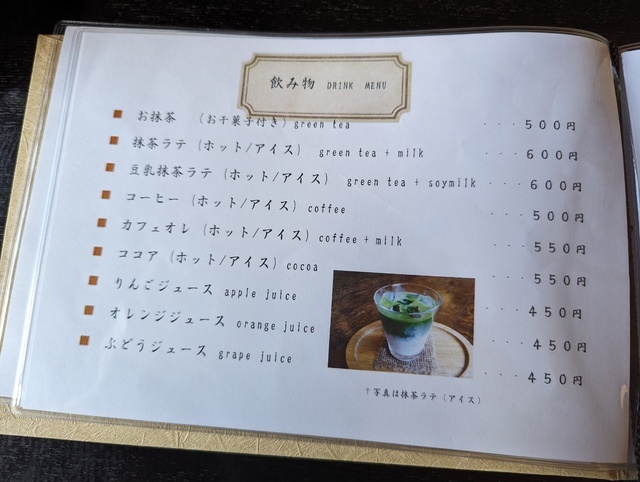 飲み物 DRINK MENU
■ お抹茶 （お干菓子付き）green tea ･･･５００円
■ 抹茶ラテ（ホット/アイス） green tea + milk ･･･６００円
■ 豆乳抹茶ラテ（ホット/アイス） green tea + soymilk ･･･６００円
■ コーヒー（ホット/アイス）coffee ･･･５００円
■ カフェオレ（ホット/アイス）coffee + milk ･･･５５０円
■ ココア（ホット/アイス）cocoa ･･･５５０円
■ りんごジュース apple juice ･･･４５０円
■ オレンジジュース orange juice ･･･４５０円
■ ぶどうジュース grape juice ･･･４５０円
↑写真は抹茶ラテ（アイス）